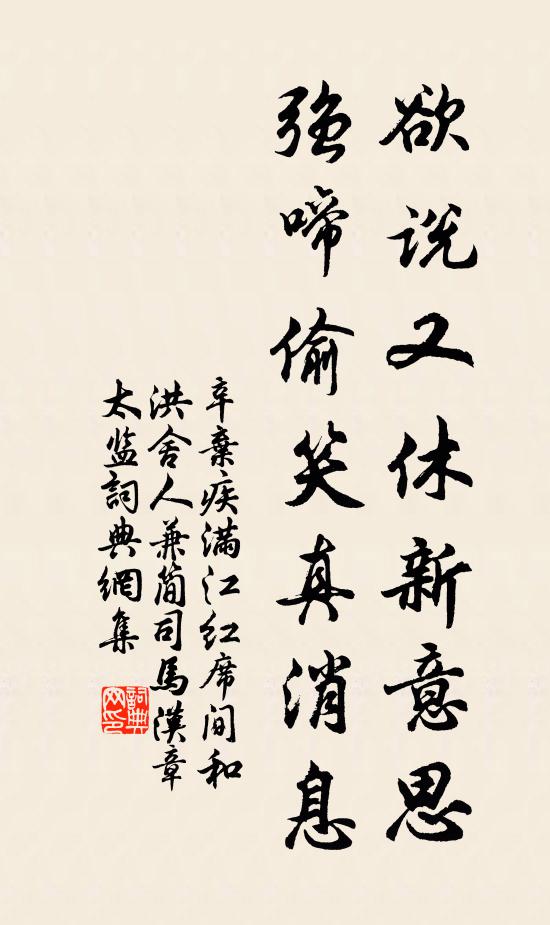 欲说又休新意思
强啼偷笑真消息
辛棄疾满江红席间和
洪舍人兼簡司馬漢章
太监詞典網集
詞典
网印